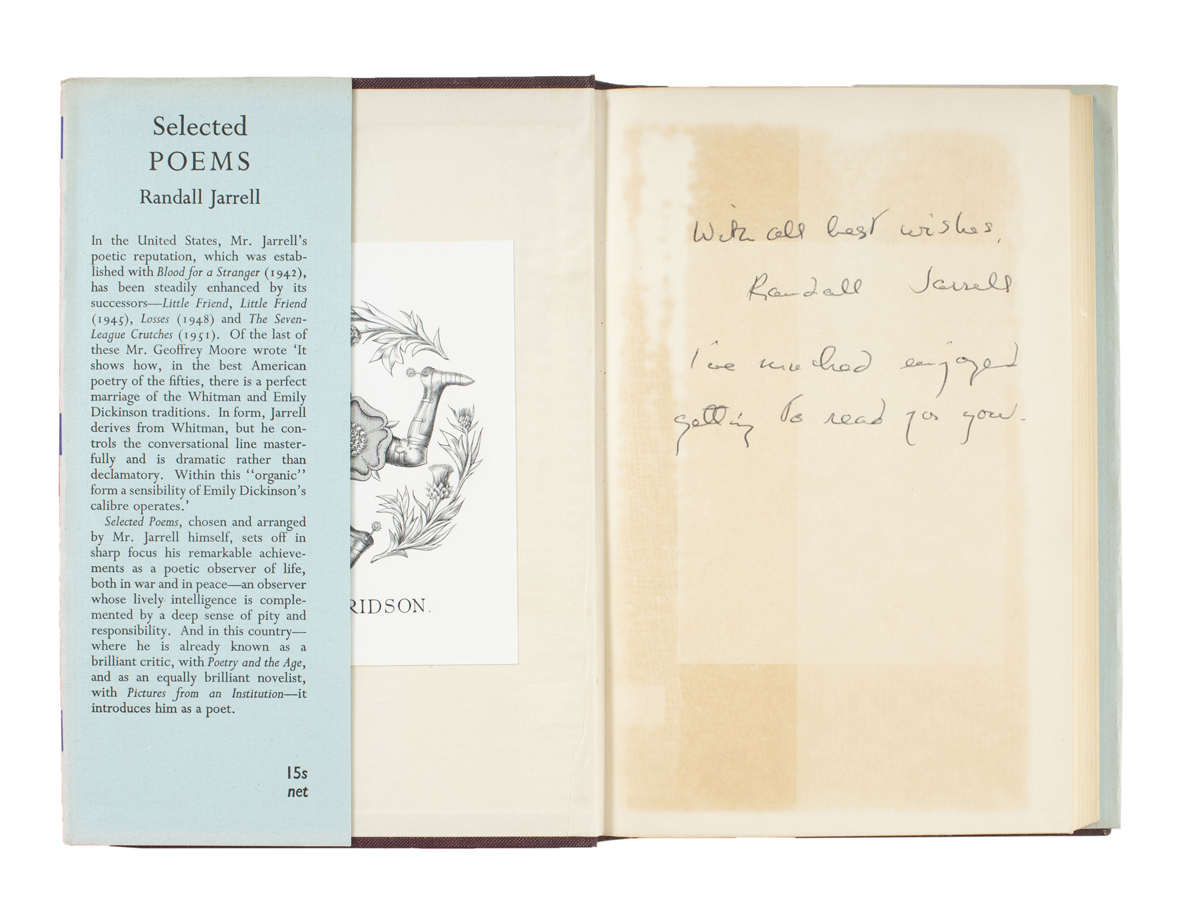 Selected
POEMS
Randall Jarrell
In the United States, Mr. Jarrell's
poetic reputation, which was estab-
lished with Blood for a Stranger (1942),
has been steadily enhanced by its
successors—Little Friend, Little Friend
(1945), Losses (1948) and The Seven-
League Crutches (1951). Of the last of
these Mr. Geoffrey Moore wrote 'It
shows how, in the best American
poetry of the fifties, there is a perfect
marriage of the Whitman and Emily
Dickinson traditions. In form, Jarrell
derives from Whitman, but he con-
trols the conversational line master-
fully and is dramatic rather than
declamatory. Within this "organic"
form a sensibility of Emily Dickinson's
calibre operates.'
Selected Poems, chosen and arranged
by Mr. Jarrell himself, sets off in
sharp focus his remarkable achieve-
ments as a poetic observer of life,
both in war and in peace—an observer
whose lively intelligence is comple-
mented by a deep sense of pity and
responsibility. And in this country—
where he is already known as a
brilliant critic, with Poetry and the Age,
and as an equally brilliant novelist,
with Pictures from an Institution—it
introduces him as a poet.
15s
net
RIDSON.
With all best wishes,
Randall Jarrell
I've enjoyed
getting to read for you.